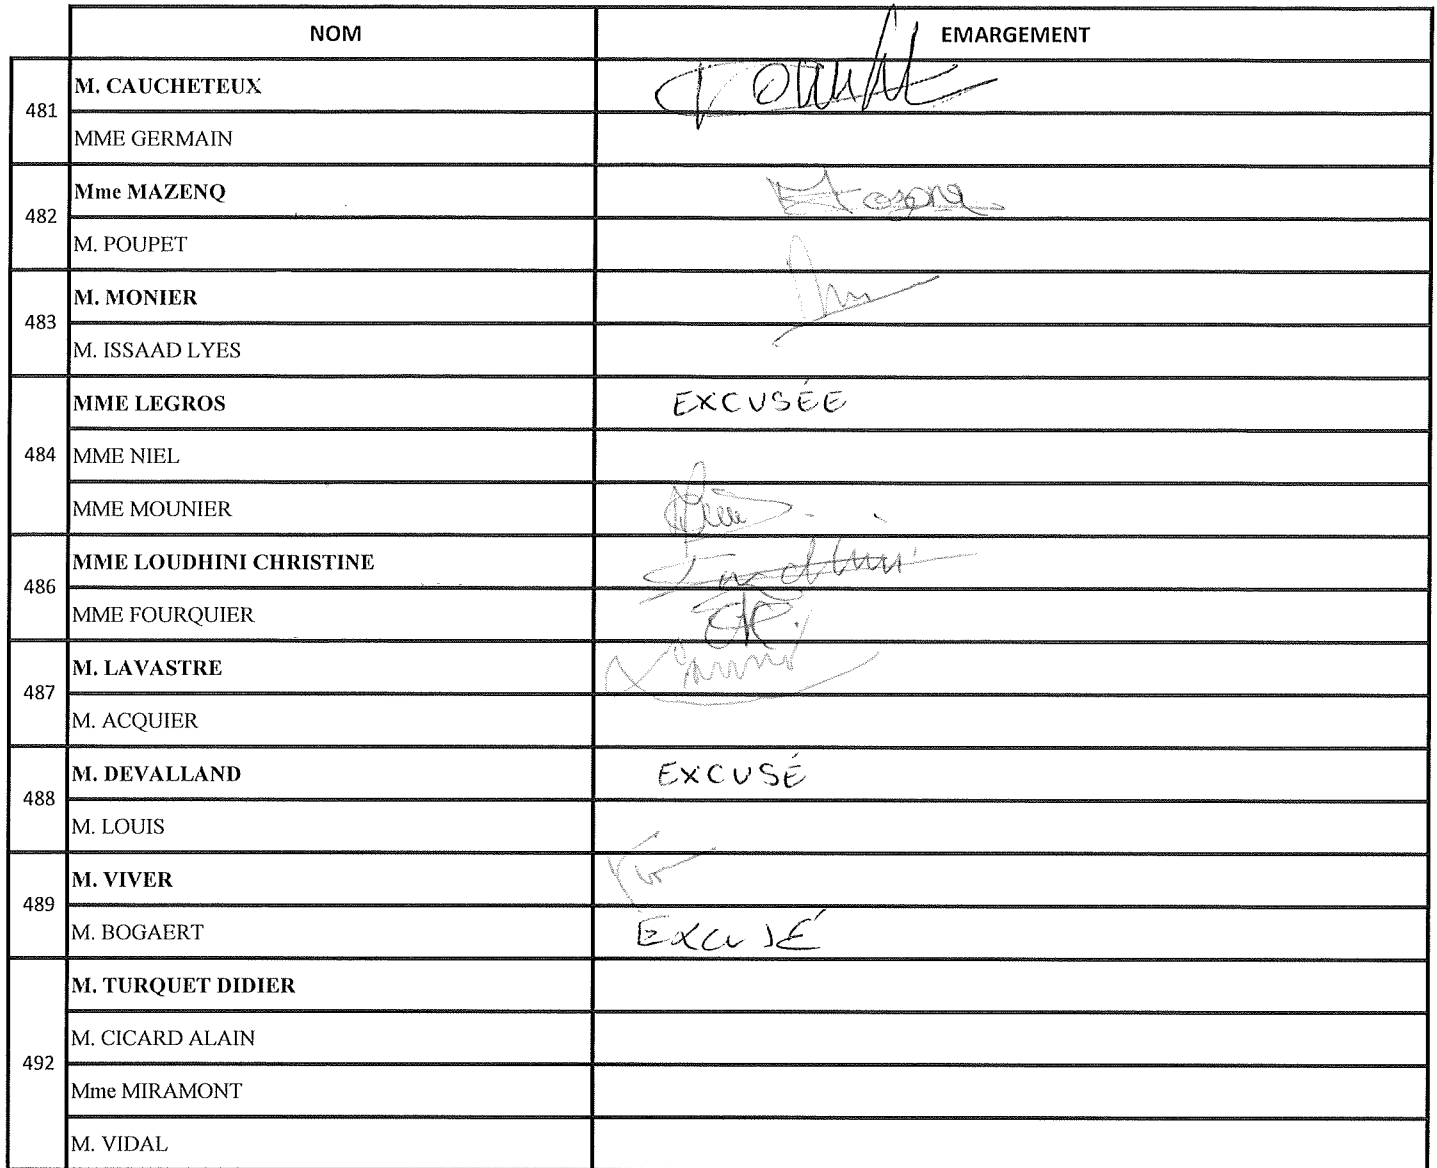 NOM EMARGEMENT
481
M. CAUCHETEUX
MME GERMAIN
482
Mme MAZENQ
M. POUPET
483
M. MONIER
M. ISSAAD LYES
484
MME LEGROS EXCUSÉE
MME NIEL
MME MOUNIER
486
MME LOUDHINI CHRISTINE
MME FOURQUIER
487
M. LAVASTRE
M. ACQUIER
488
M. DEVALLAND EXCUSÉ
M. LOUIS
489
M. VIVER
M. BOGAERT EXCUSÉ
492
M. TURQUET DIDIER
M. CICARD ALAIN
Mme MIRAMONT
M. VIDAL